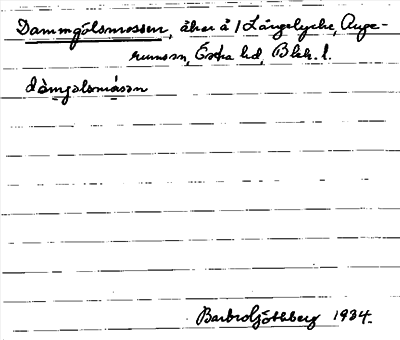 Dammgölsmossen, åker å 1 Långelycke, Auge-
rums sn, Östra hd, Blek. l.
dàmgölsmåsən
Barbro Ljöthberg 1934.